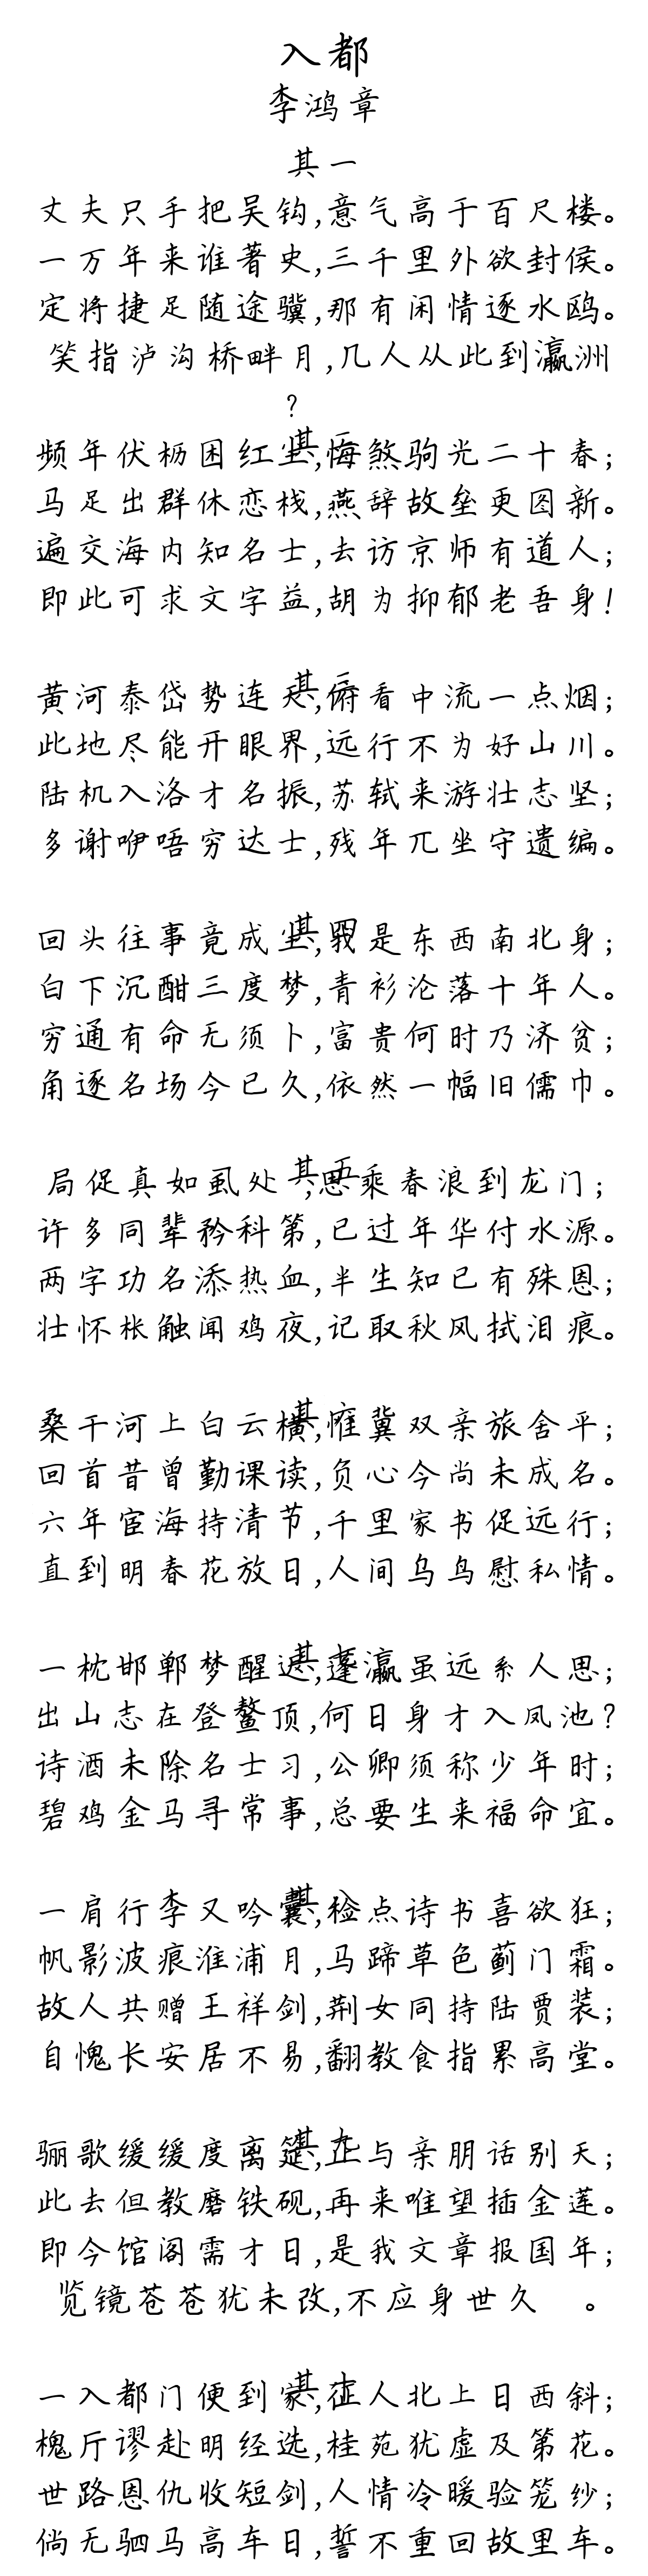 入都
李鸿章
其一
丈夫只手把吴钩,意气高于百尺楼。
一万年来谁著史,三千里外欲封侯。
定将捷足随途骥,那有闲情逐水鸥。
笑指泸沟桥畔月,几人从此到瀛洲
?
其二
频年伏枥困红尘,悔煞驹光二十春;
马足出群休恋栈,燕辞故垒更图新。
遍交海内知名士,去访京师有道人;
即此可求文字益,胡为抑郁老吾身!
其三
黄河泰岱势连天,俯看中流一点烟;
此地尽能开眼界,远行不为好山川。
陆机入洛才名振,苏轼来游壮志坚;
多谢咿唔穷达士,残年兀坐守遗编。
其四
回头往事竟成尘,我是东西南北身;
白下沉酣三度梦,青衫沦落十年人。
穷通有命无须卜,富贵何时乃济贫;
角逐名场今已久,依然一幅旧儒巾。
其五
局促真如虱处 ,思乘春浪到龙门;
许多同辈矜科第,已过年华付水源。
两字功名添热血,半生知已有殊恩;
壮怀枨触闻鸡夜,记取秋风拭泪痕。
其六
桑干河上白云横,惟冀双亲旅舍平;
回首昔曾勤课读,负心今尚未成名。
六年宦海持清节,千里家书促远行;
直到明春花放日,人间乌鸟慰私情。
其七
一枕邯郸梦醒迟,蓬瀛虽远系人思;
出山志在登鳌顶,何日身才入凤池?
诗酒未除名士习,公卿须称少年时;
碧鸡金马寻常事,总要生来福命宜。
其八
一肩行李又吟囊,检点诗书喜欲狂;
帆影波痕淮浦月,马蹄草色蓟门霜。
故人共赠王祥剑,荆女同持陆贾装;
自愧长安居不易,翻教食指累高堂。
其九
骊歌缓缓度离筵,正与亲朋话别天;
此去但教磨铁砚,再来唯望插金莲。
即今馆阁需才日,是我文章报国年;
览镜苍苍犹未改,不应身世久 。
其十
一入都门便到家,征人北上日西斜;
槐厅谬赴明经选,桂苑犹虚及第花。
世路恩仇收短剑,人情冷暖验笼纱;
倘无驷马高车日,誓不重回故里车。